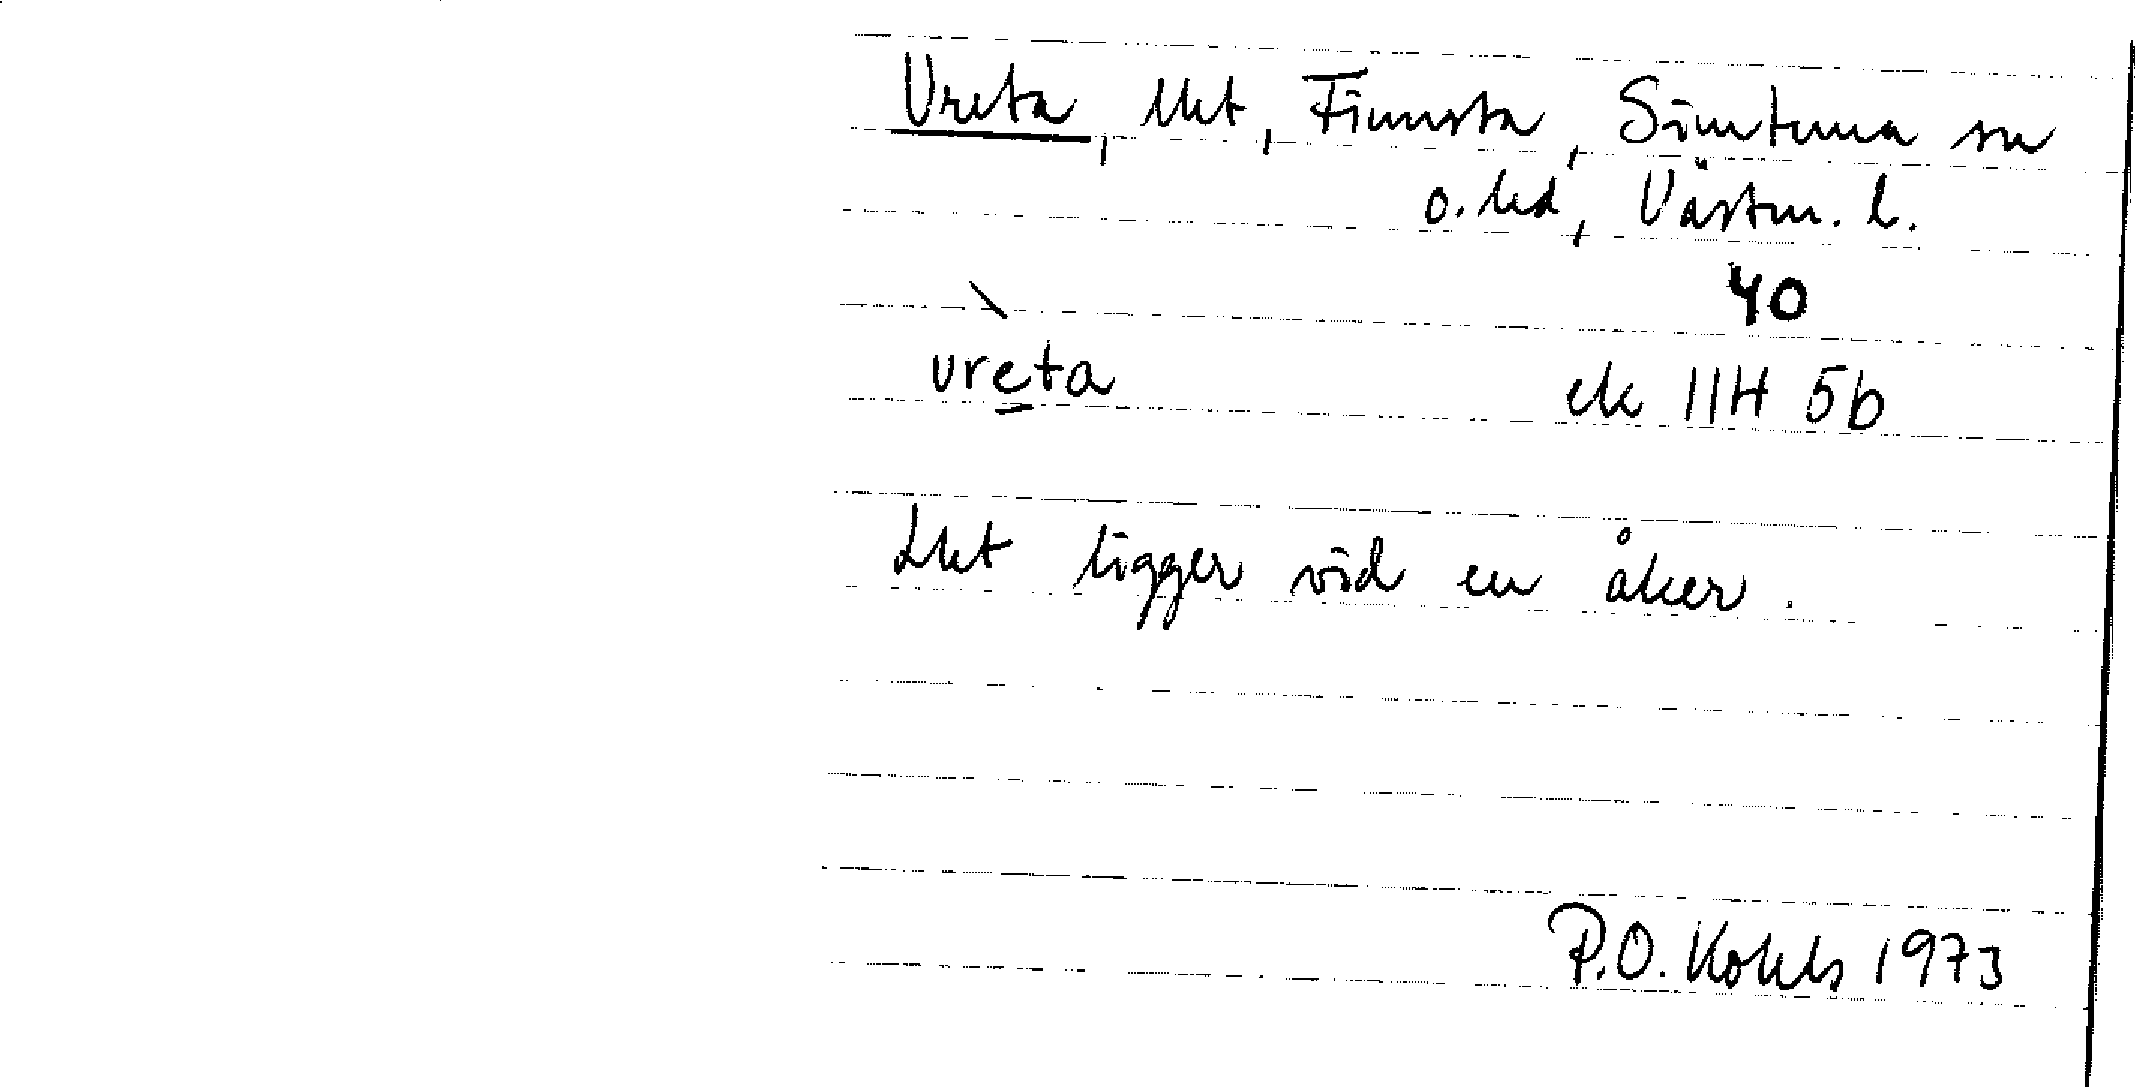 Vreta, Lht, Finnsta, Simtuna sn
o. hd, Västm. l.
40
vreta ek 11H 5b
Lht ligger vid en åker.
P.O. Kohls 1973